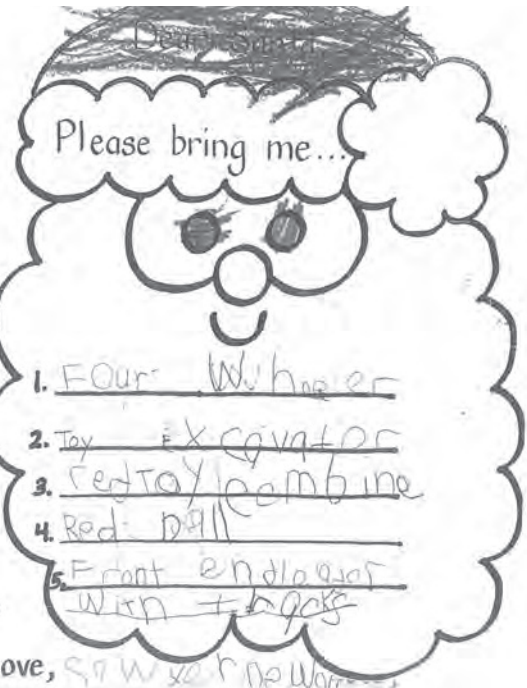 Dear Santa
Please bring me...
1. Four Whheler
2. Toy Excavator
3. red Toy combine
4. Red ball
5. Front endloader
with tracks
ove,